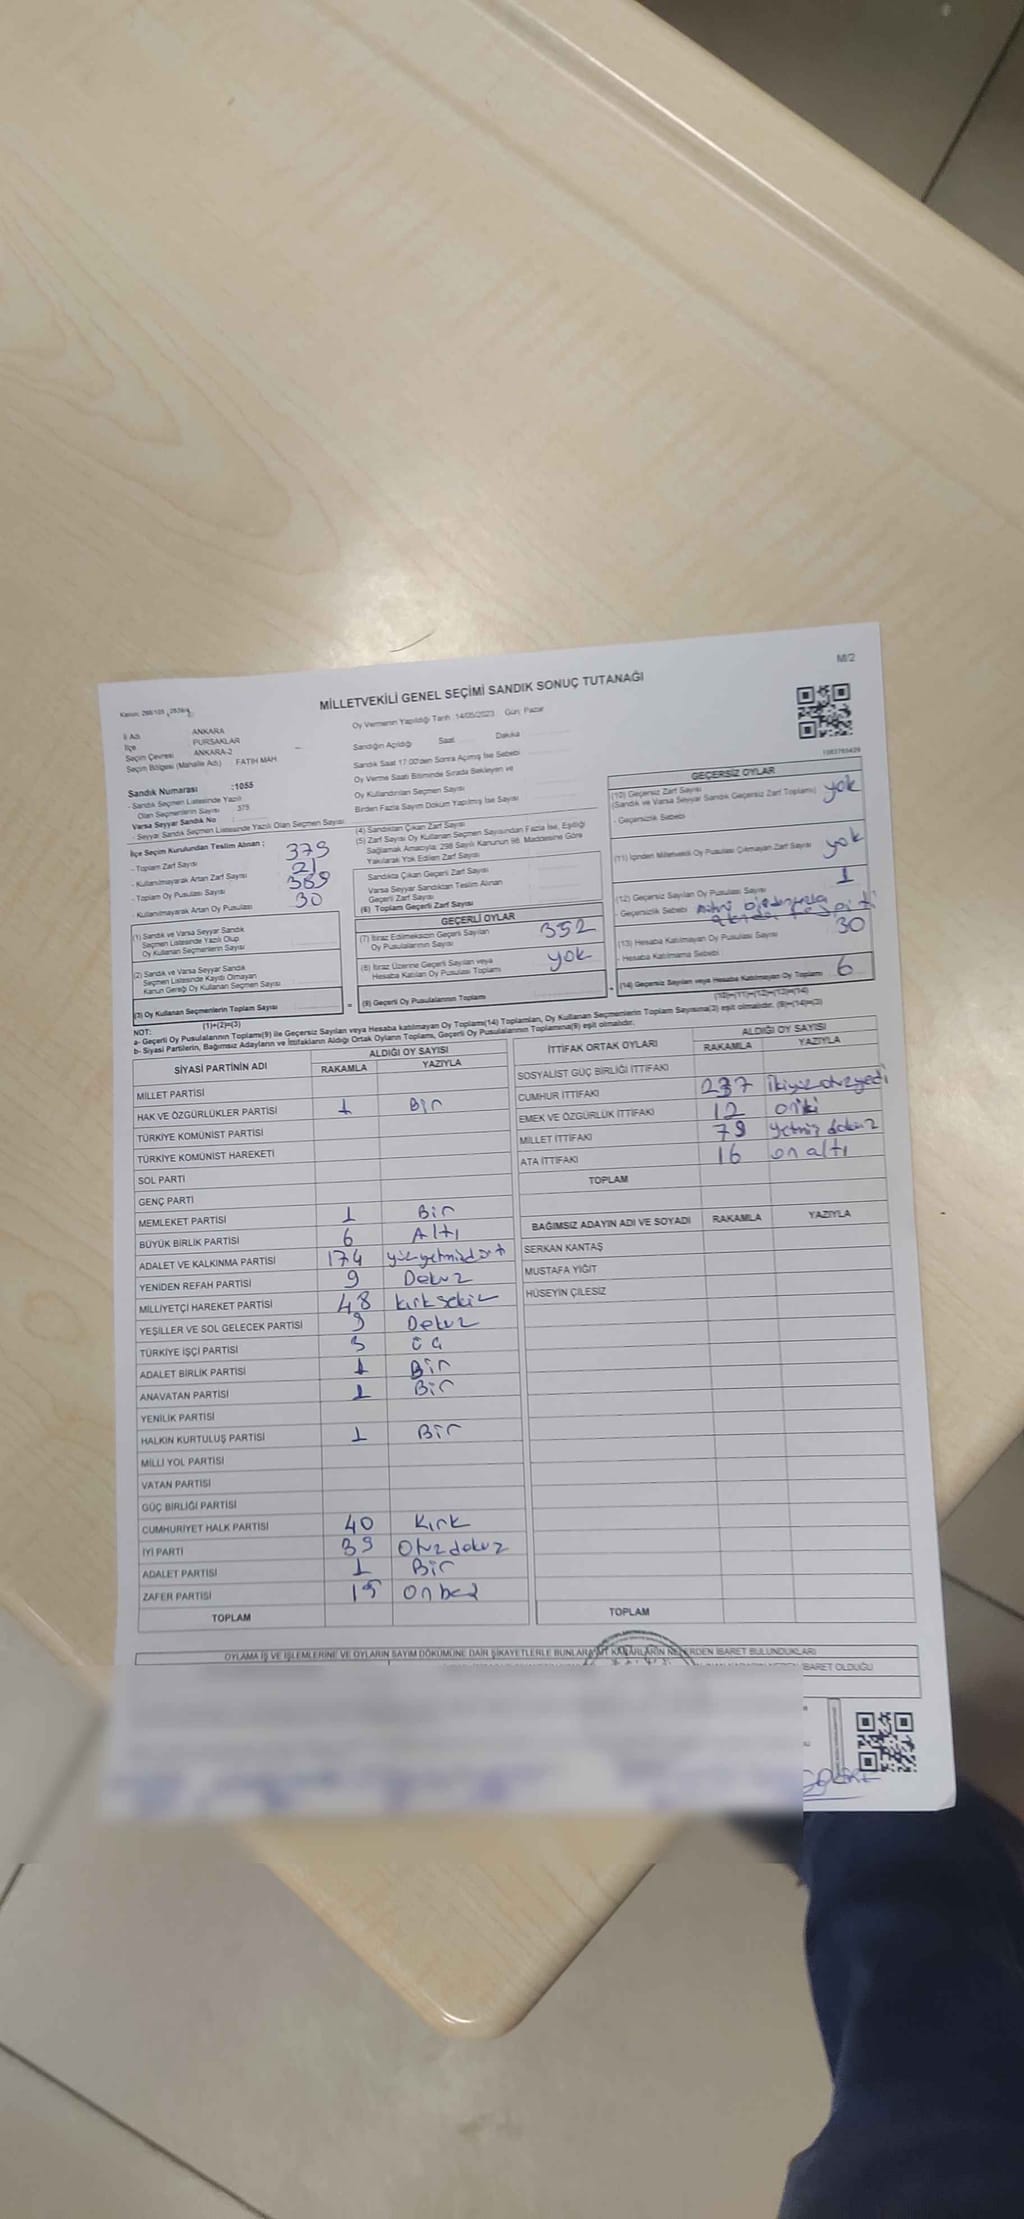 M/2
MİLLETVEKİLİ GENEL SEÇİMİ SANDIK SONUÇ TUTANAĞI
İl Adı ANKARA
İlçe PURSAKLAR
Seçim Çevresi ANKARA-2
Seçim Bölgesi (Mahalle Adı) FATİH MAH
Oy Vermenin Yapıldığı Tarih :14/05/2023 Gün: Pazar
Sandığın Açıldığı Saat Dakika
Sandık Saat 17.00'den Sonra Açmış İse Sebebi
Oy Verme Saati Bitiminde Sırada Bekleyen ve
Oy Kullandırılan Seçmen Sayısı
Birden Fazla Sayım Döküm Yapılmış İse Sayısı
Sandık Numarası :1055
- Sandık Seçmen Listesinde Yazılı
Olan Seçmenlerin Sayısı : 375
Varsa Seyyar Sandık No
- Seyyar Sandık Seçmen Listesinde Yazılı Olan Seçmen Sayısı
İlçe Seçim Kurulundan Teslim Alınan ;
- Toplam Zarf Sayısı 379
- Kullanılmayarak Artan Zarf Sayısı 21
- Toplam Oy Pusulası Sayısı 389
- Kullanılmayarak Artan Oy Pusulası 30
(1) Sandık ve Varsa Seyyar Sandık
Seçmen Listesinde Yazılı Olup
Oy Kullanan Seçmenlerin Sayısı
(2) Sandık ve Varsa Seyyar Sandık
Seçmen Listesinde Kaydı Olmayan
Kanun Gereği Oy Kullanan Seçmen Sayısı
(3) Oy Kullanan Seçmenlerin Toplam Sayısı
(1)+(2)=(3)
(4) Sandıktan Çıkan Zarf Sayısı
(5) Zarf Sayısı Oy Kullanan Seçmen Sayısından Fazla İse, Eşitliği
Sağlamak Amacıyla, 298 Sayılı Kanunun 98. Maddesine Göre
Yakılarak Yok Edilen Zarf Sayısı
Sandıkta Çıkan Geçerli Zarf Sayısı
Varsa Seyyar Sandıktan Teslim Alınan
Geçerli Zarf Sayısı
(6) Toplam Geçerli Zarf Sayısı
GEÇERLİ OYLAR
(7) İtiraz Edilmeksizin Geçerli Sayılan
Oy Pusulalarının Sayısı 352
(8) İtiraz Üzerine Geçerli Sayılan veya
Hesaba Katılan Oy Pusulası Toplamı yok
(9) Geçerli Oy Pusulalarının Toplamı
GEÇERSİZ OYLAR
(10) Geçersiz Zarf Sayısı
(Sandık ve Varsa Seyyar Sandık Geçersiz Zarf Toplamı) yok
- Geçersizlik Sebebi
(11) İçinden Milletvekili Oy Pusulası Çıkmayan Zarf Sayısı yok
(12) Geçersiz Sayılan Oy Pusulası Sayısı 1
- Geçersizlik Sebebi
(13) Hesaba Katılmayan Oy Pusulası Sayısı 30
- Hesaba Katılmama Sebebi
(14) Geçersiz Sayılan veya Hesaba Katılmayan Oy Toplamı 6
(10)+(11)+(12)+(13)=(14)
NOT:
a- Geçerli Oy Pusulalarının Toplamı(9) ile Geçersiz Sayılan veya Hesaba katılmayan Oy Toplamı(14) Toplamları, Oy Kullanan Seçmenlerin Toplam Sayısına(3) eşit olmalıdır. (9)+(14)=(3)
b- Siyasi Partilerin, Bağımsız Adayların ve İttifakların Aldığı Ortak Oyların Toplamı, Geçerli Oy Pusulalarının Toplamına(9) eşit olmalıdır.
SİYASİ PARTİNİN ADI ALDIĞI OY SAYISI
RAKAMLA YAZIYLA
MİLLET PARTİSİ
HAK VE ÖZGÜRLÜKLER PARTİSİ 1 Bir
TÜRKİYE KOMÜNİST PARTİSİ
TÜRKİYE KOMÜNİST HAREKETİ
SOL PARTİ
GENÇ PARTİ
MEMLEKET PARTİSİ 1 Bir
BÜYÜK BİRLİK PARTİSİ 6 Altı
ADALET VE KALKINMA PARTİSİ 174 yüzyetmişdört
YENİDEN REFAH PARTİSİ 9 Dokuz
MİLLİYETÇİ HAREKET PARTİSİ 48 kırksekiz
YEŞİLLER VE SOL GELECEK PARTİSİ 9 Dokuz
TÜRKİYE İŞÇİ PARTİSİ 3 üç
ADALET BİRLİK PARTİSİ 1 Bir
ANAVATAN PARTİSİ 1 Bir
YENİLİK PARTİSİ
HALKIN KURTULUŞ PARTİSİ 1 Bir
MİLLİ YOL PARTİSİ
VATAN PARTİSİ
GÜÇ BİRLİĞİ PARTİSİ
CUMHURİYET HALK PARTİSİ 40 Kırk
İYİ PARTİ 39 Otuzdokuz
ADALET PARTİSİ 1 Bir
ZAFER PARTİSİ 15 onbeş
TOPLAM
İTTİFAK ORTAK OYLARI ALDIĞI OY SAYISI
RAKAMLA YAZIYLA
SOSYALİST GÜÇ BİRLİĞİ İTTİFAKI
CUMHUR İTTİFAKI 237 ikiyüzotuzyedi
EMEK VE ÖZGÜRLÜK İTTİFAKI 12 oniki
MİLLET İTTİFAKI 79 yetmiş dokuz
ATA İTTİFAKI 16 on altı
TOPLAM
BAĞIMSIZ ADAYIN ADI VE SOYADI RAKAMLA YAZIYLA
SERKAN KANTAŞ
MUSTAFA YİĞİT
HÜSEYİN ÇİLESİZ
TOPLAM
OYLAMA İŞ VE İŞLEMLERİNE VE OYLARIN SAYIM DÖKÜMÜNE DAİR ŞİKAYETLERLE BUNLARA AİT KARARLARIN NELERDEN İBARET BULUNDUKLARI
İBARET OLDUĞU